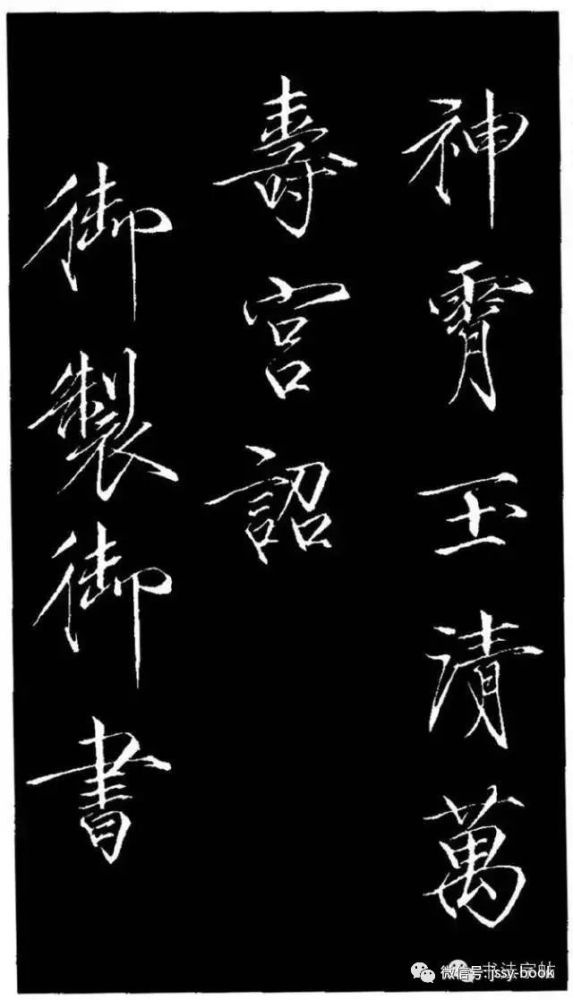 神霄玉清萬
壽宮詔
御製御書
书法字帖
微信号: jssy-book